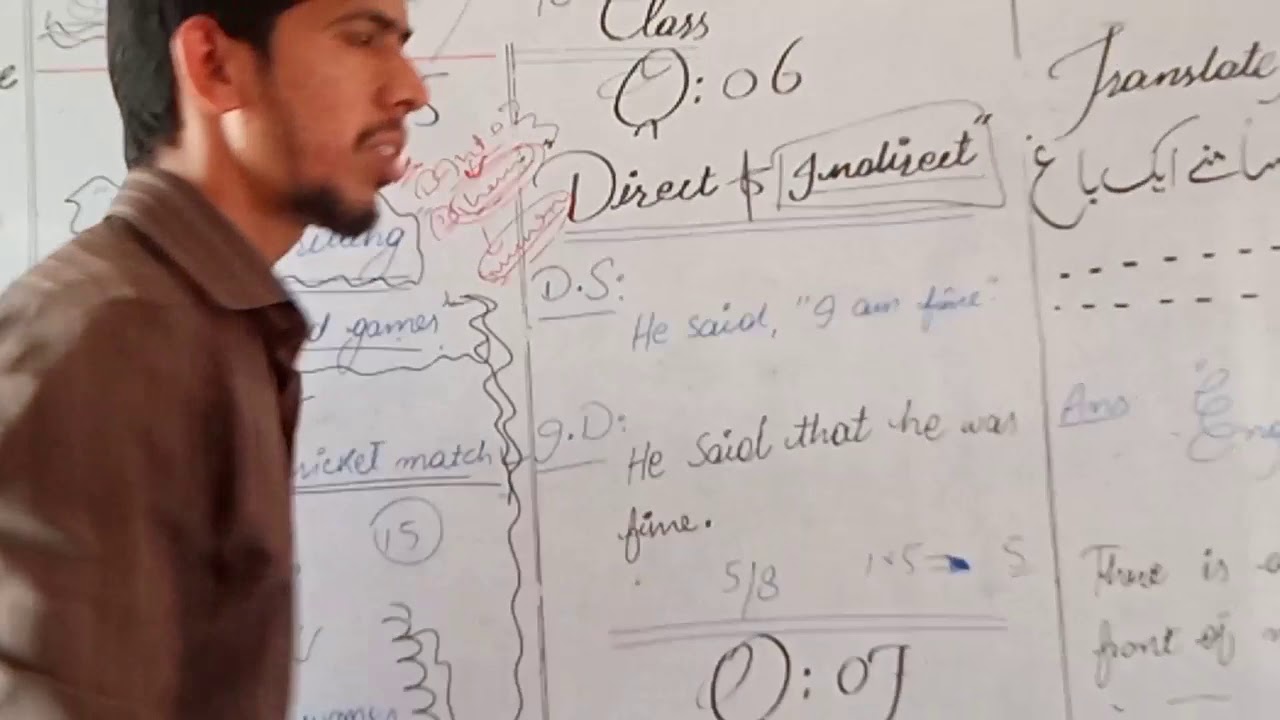 games
cricket match
15
Class
Q: 06
Direct & "Indirect"
D.S:
He said, "I am fine"
I.D:
He said that he was
fine.
5/8 1×5= 5
Q: 07
Translate
ایک باغ
Ans
There is a
front of